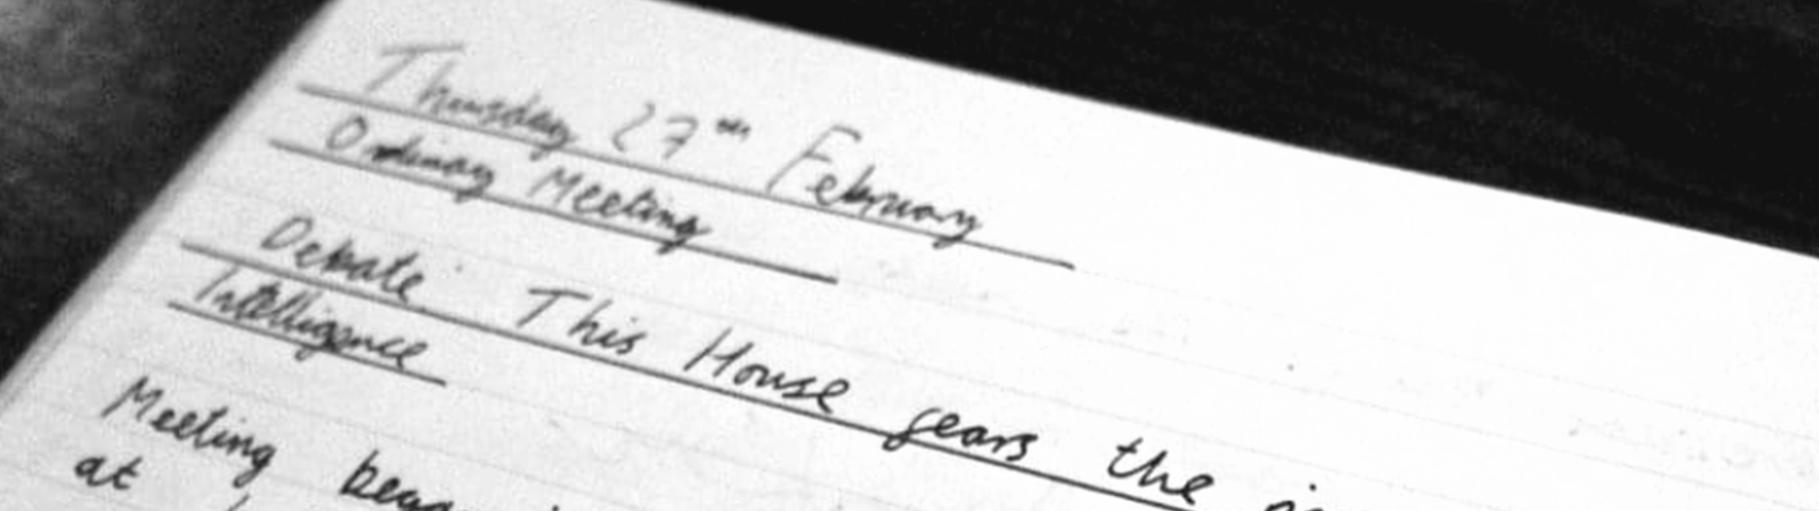 Thursday 27th February
Ordinary Meeting
Debate: This House fears the
Intelligence
Meeting began
at